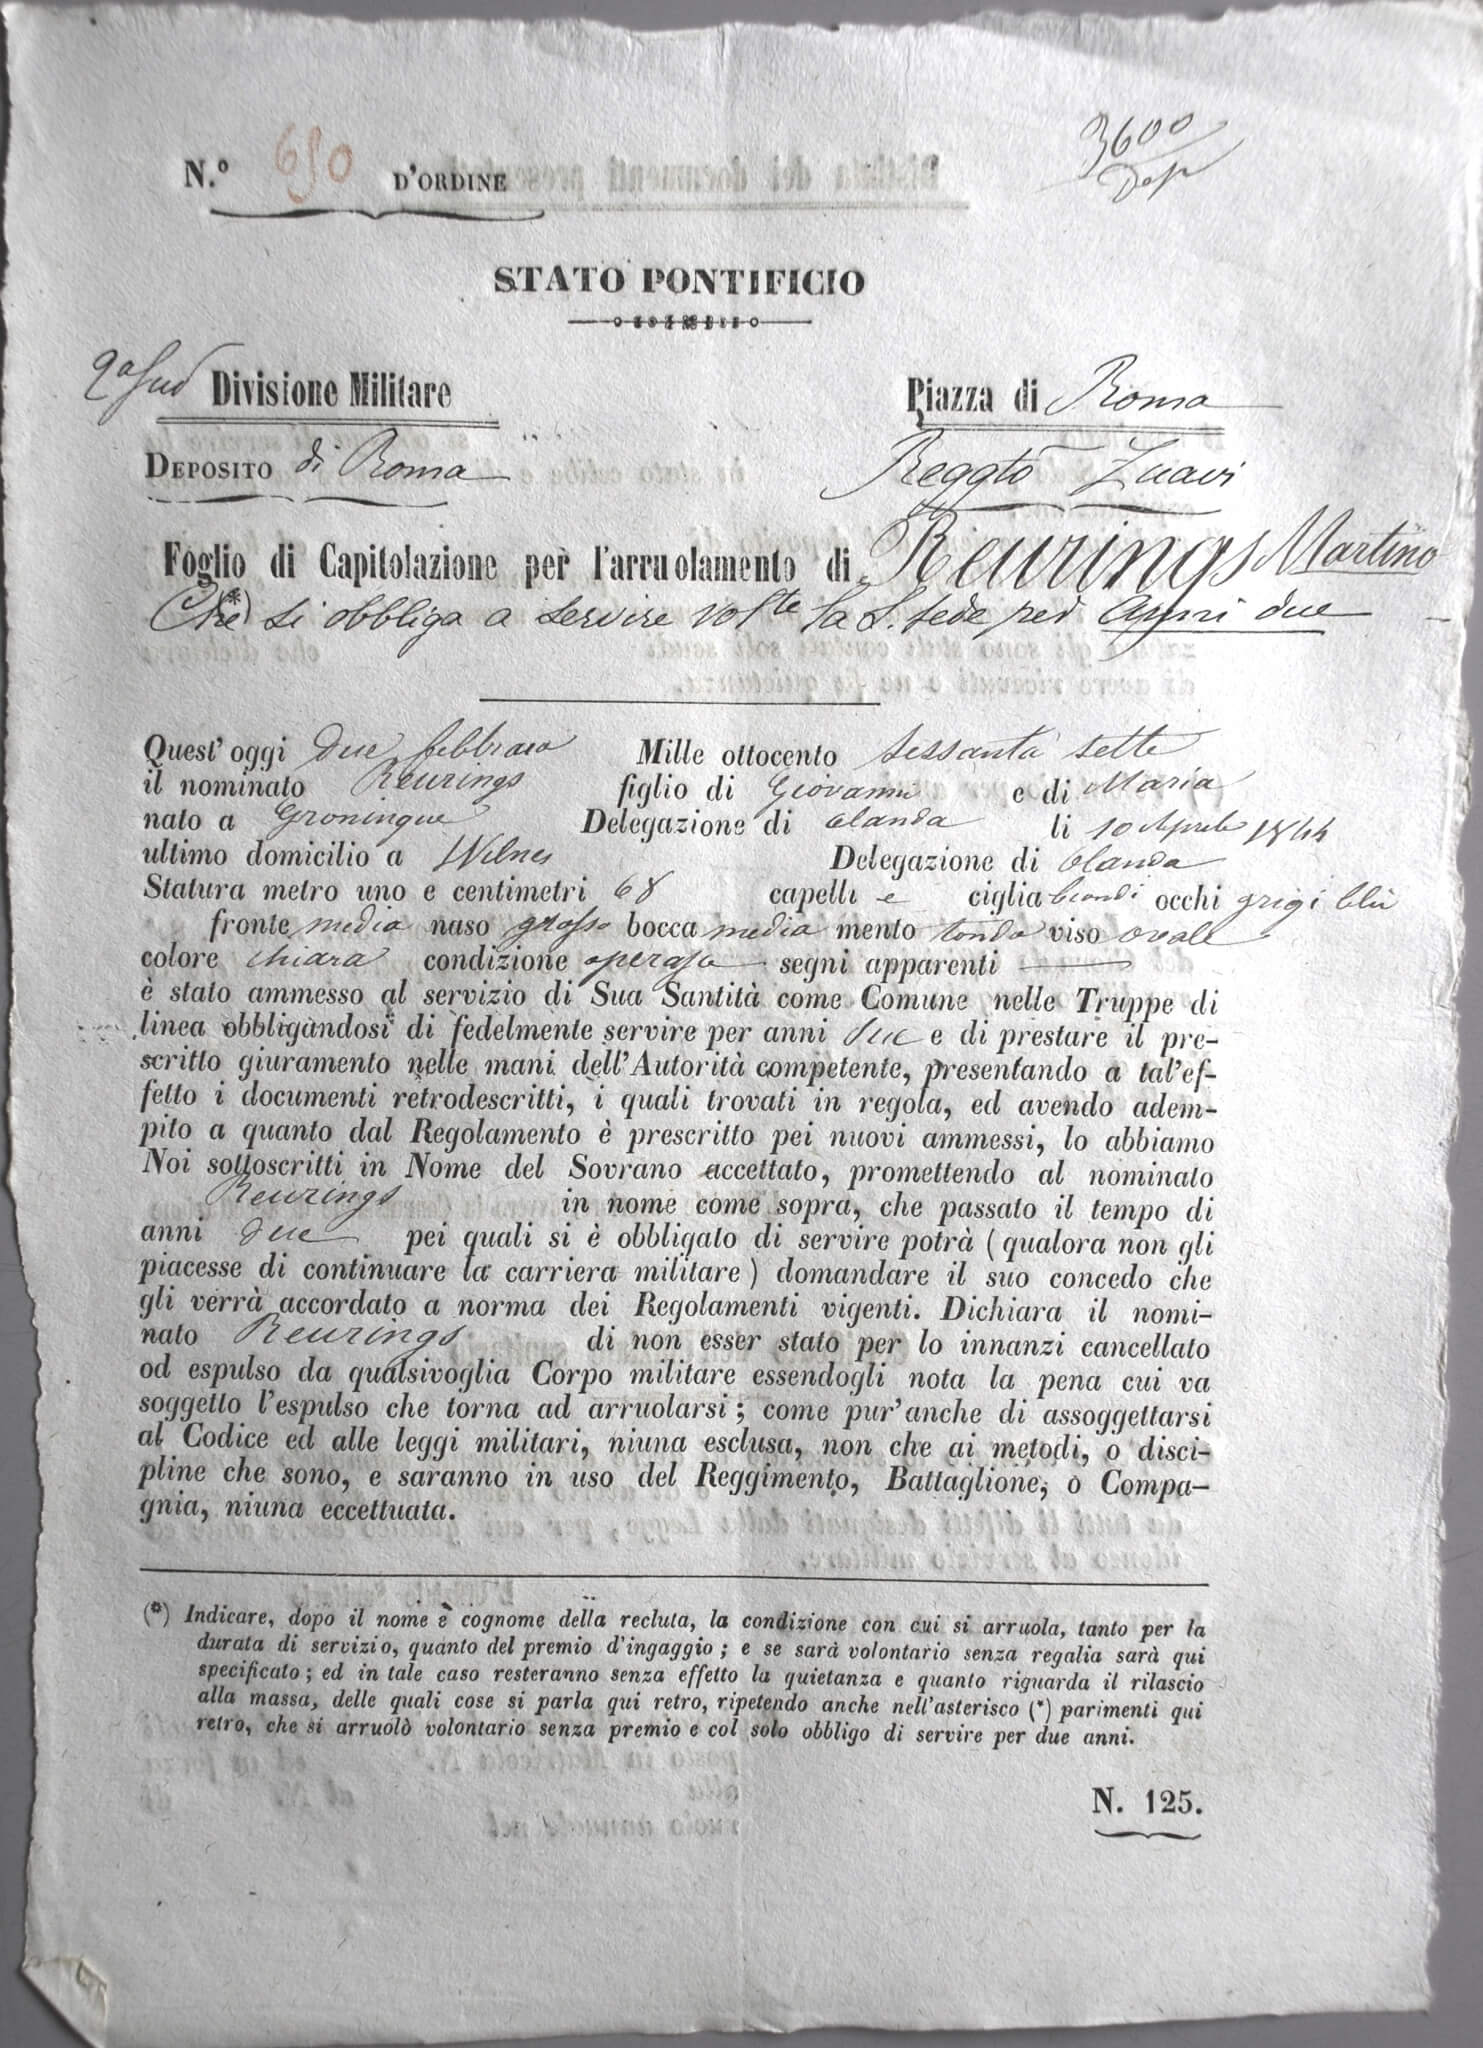 N.º 690 D'ORDINE
3600
STATO PONTIFICIO
2ª Sud Divisione Militare
Piazza di Roma
DEPOSITO di Roma
Reggto Zuavi
Foglio di Capitolazione per l'arruolamento di Reurings Martino
(*) Che si obbliga a servire volte la S. Sede per Anni due
Quest' oggi due febbraio Mille ottocento sessanta sette
il nominato Reurings figlio di Giovanni e di Maria
nato a Groningue Delegazione di Olanda li 10 Aprile 1844
ultimo domicilio a Delegazione di Olanda
Statura metro uno e centimetri 68 capelli e ciglia biondi occhi grigi blù
fronte media naso grosso bocca media mento tondo viso ovale
colore chiara condizione operajo segni apparenti —
è stato ammesso al servizio di Sua Santità come Comune nelle Truppe di
linea obbligandosi di fedelmente servire per anni due e di prestare il pre-
scritto giuramento nelle mani dell'Autorità competente, presentando a tal'ef-
fetto i documenti retrodescritti, i quali trovati in regola, ed avendo adem-
pito a quanto dal Regolamento è prescritto pei nuovi ammessi, lo abbiamo
Noi sottoscritti in Nome del Sovrano accettato, promettendo al nominato
Reurings in nome come sopra, che passato il tempo di
anni due pei quali si è obbligato di servire potrà (qualora non gli
piacesse di continuare la carriera militare) domandare il suo concedo che
gli verrà accordato a norma dei Regolamenti vigenti. Dichiara il nomi-
nato Reurings di non esser stato per lo innanzi cancellato
od espulso da qualsivoglia Corpo militare essendogli nota la pena cui va
soggetto l'espulso che torna ad arruolarsi; come pur'anche di assoggettarsi
al Codice ed alle leggi militari, niuna esclusa, non che ai metodi, o disci-
pline che sono, e saranno in uso del Reggimento, Battaglione, o Compa-
gnia, niuna eccettuata.
(*) Indicare, dopo il nome e cognome della recluta, la condizione con cui si arruola, tanto per la
durata di servizio, quanto del premio d'ingaggio; e se sarà volontario senza regalia sarà qui
specificato; ed in tale caso resteranno senza effetto la quietanza e quanto riguarda il rilascio
alla massa, delle quali cose si parla qui retro, ripetendo anche nell'asterisco (*) parimenti qui
retro, che si arruolò volontario senza premio e col solo obbligo di servire per due anni.
N. 125.